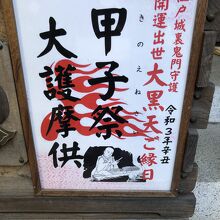 江戸城裏鬼門守護
開運出世大黒天ご縁日
きのえね
甲子祭
大護摩供
令和3年辛丑